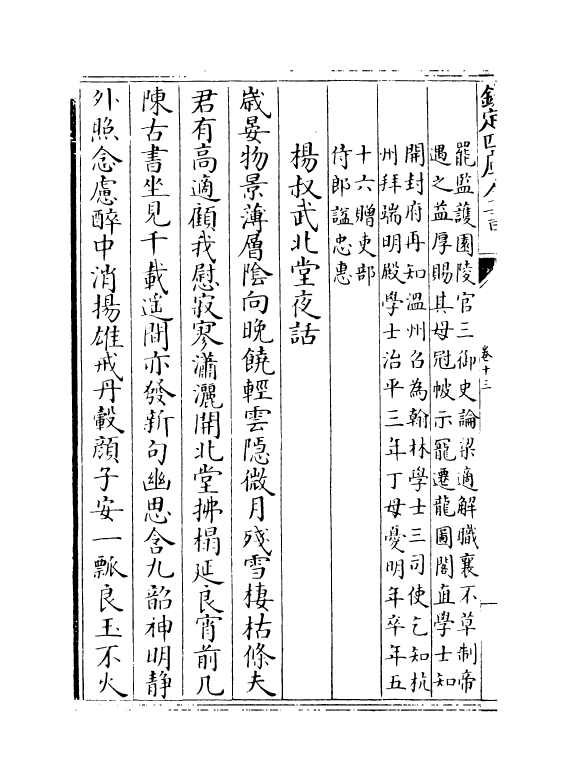 欽定四庫全書
卷十三
罷監護園陵官三御史論梁適解職襄不草制帝
遇之益厚賜其母冠帔示寵遷龍圖閣直學士知
開封府再知溫州召為翰林學士三司使乞知杭
州拜端明殿學士治平三年丁母憂明年卒年五
十六贈吏部
侍郎諡忠惠
楊叔武北堂夜話
歲晏物景薄層陰向晚饒輕雲隱微月殘雪棲枯條夫
君有高適顧我慰寂寥瀟灑開北堂拂榻延良宵前几
陳古書坐見千載遙間亦發新句幽思含九韶神明靜
外照念慮醉中消揚雄戒丹轂顔子安一瓢良玉不火